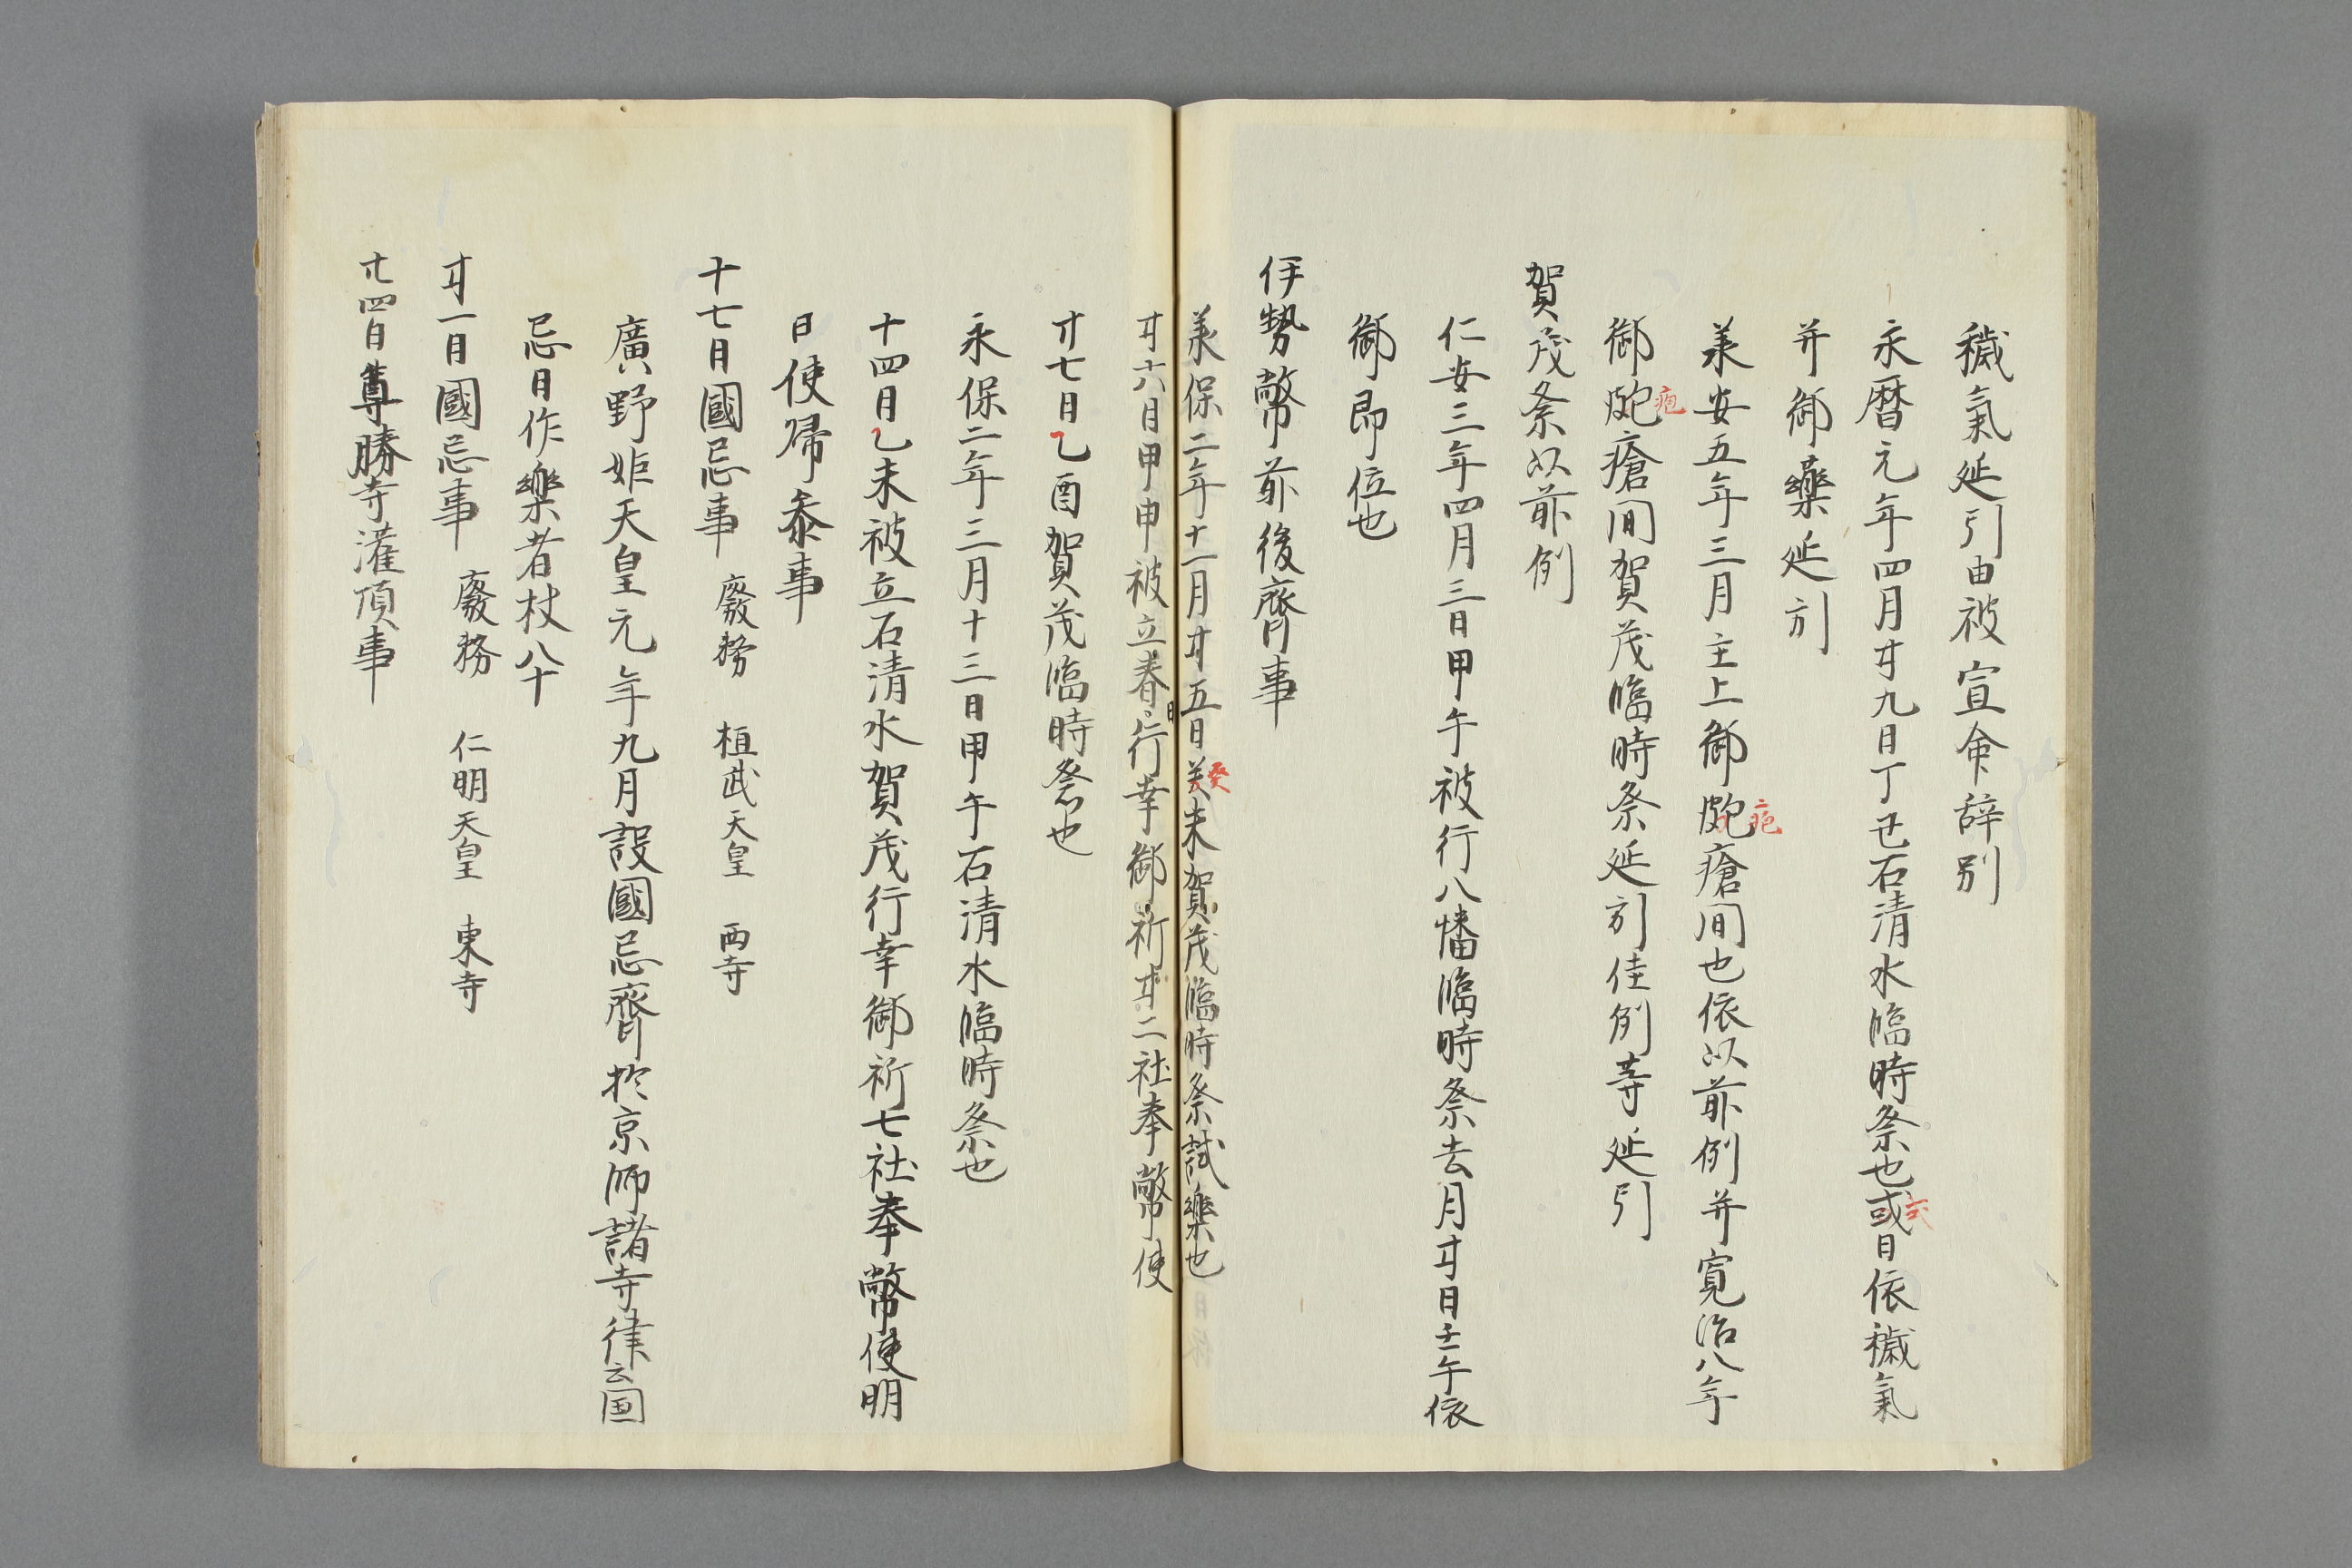 穢氣延引由被宣命辞別
永暦元年四月廿九日丁丑石清水臨時祭也或日依穢氣
弐
并御藥延引
承安五年三月主上御皰瘡间也依以前例并寛治八年
疱
御皰瘡间賀茂臨時祭延引佳例等延引
疱
賀茂祭以前例
仁安三年四月三日甲午被行八幡臨時祭去月廿日壬午依
御即位也
伊勢幣前後齊事
承保二年十一月廿五日癸未賀茂臨時祭試樂也
癸
廿六日甲申被立春日行幸御祈廿二社奉幣使
廿七日乙酉賀茂臨時祭也
永保二年三月十三日甲午石清水臨時祭也
十四日乙未被立石清水賀茂行幸御祈七社奉幣使明
日使帰参事
十七日國忌事 廢務 桓武天皇 西寺
廣野姫天皇元年九月設國忌齊於京師諸寺律云国
忌日作樂者杖八十
廿一日國忌事 廢務 仁明天皇 東寺
廿四日尊勝寺灌頂事